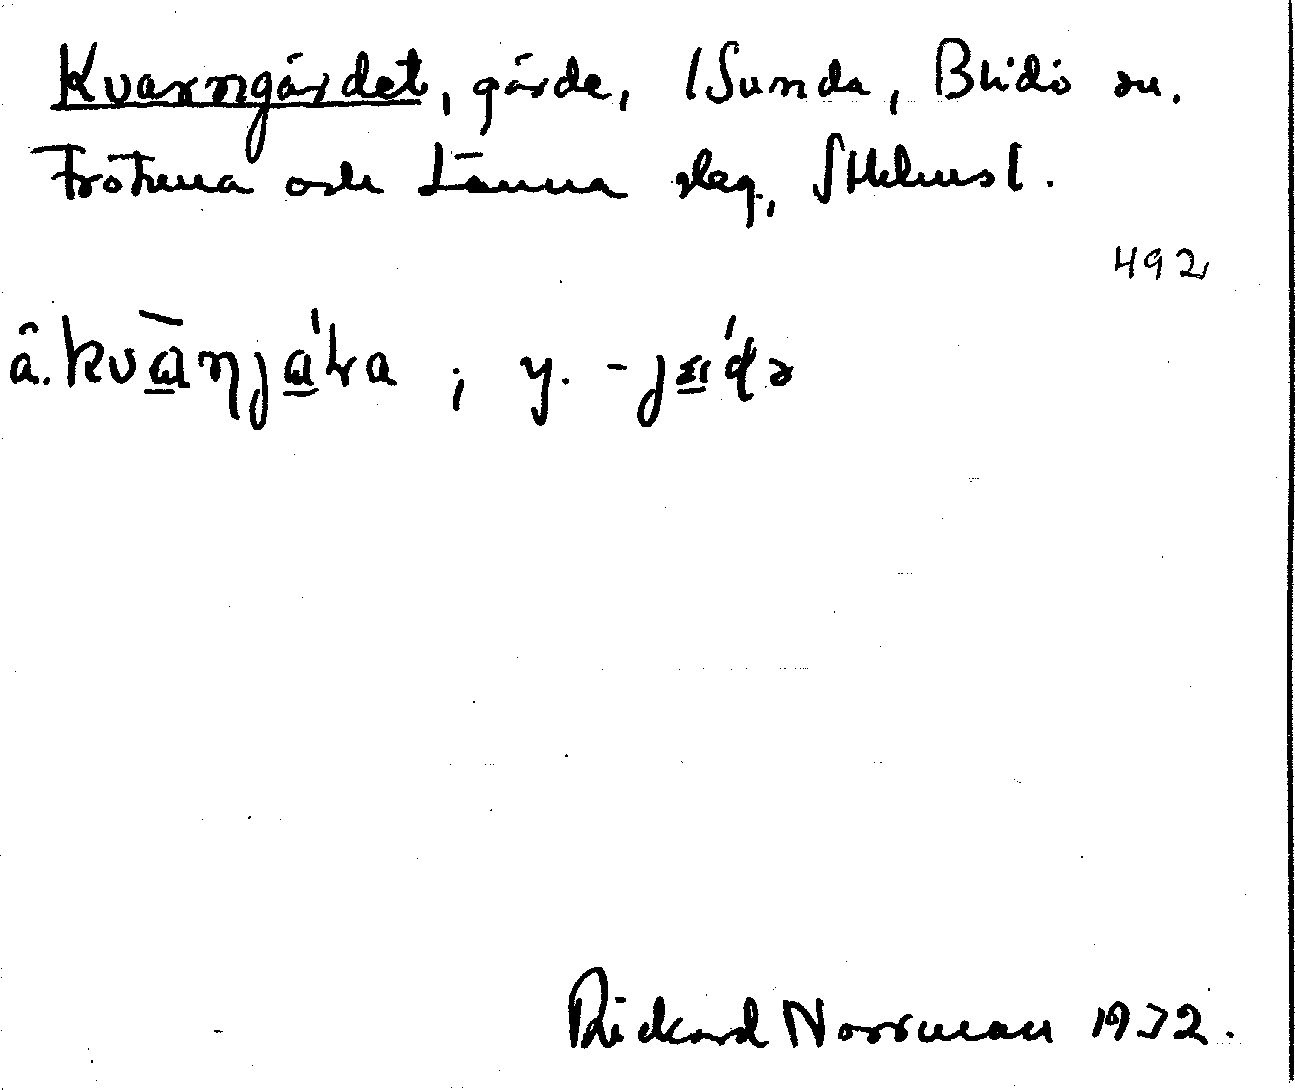 Kvarngärdet, gärde, 1 Sunda, Blidö sn.
Frötuna och Länna slag, Sthlms l.
492
å. kvànjæ̀ɽa ; y. -jæ̀ɖə
Rickard Norrman 1932.